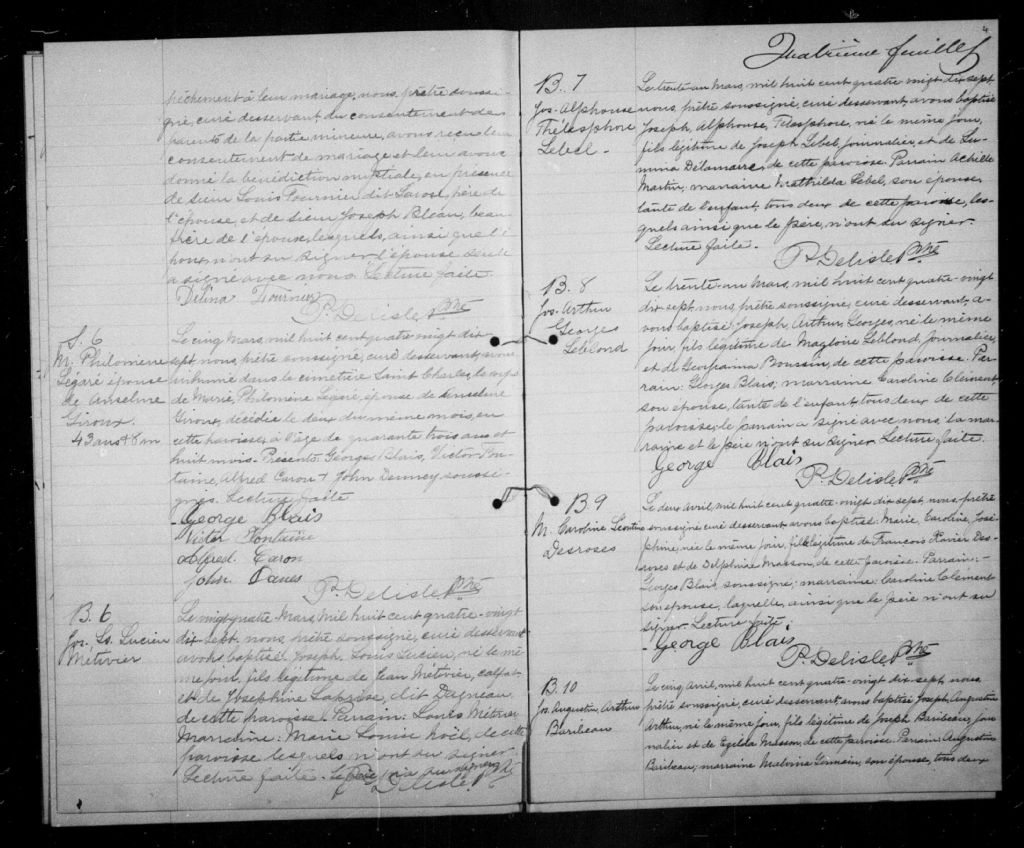 pêchement à leur mariage, nous, prêtre soussi-
gné, curé desservant du consentement des
parents de la partie mineure, avons reçu leur
consentement de mariage et leur avons
donné la bénédiction nuptiale, en présence
de sieur Louis Fournier dit Savoie, père de
l'épouse, et de sieur Joseph Bleau, beau
frère de l'épouse, lesquels, ainsi que l'é
poux, n'ont su signer. L'épouse seule
a signé avec nous. Lecture faite.
Délina Fournier
P. Delisle Ptre
S. 6
M. Philomene
Légaré épouse
de Anselme
Giroux.
43 ans & 8 m
Le cinq Mars, mil huit cent quatre vingt dix-
sept, nous, prêtre soussigné, curé desservant, avons
inhumé dans le cimetière Saint Charles, le corps
de Marie, Philomène Légaré, épouse de Anselme
Giroux, décédée le deux du même mois, en
cette paroisse, à l'âge de quarante trois ans et
huit mois. Présents: Georges Blais, Victor Fon-
taine, Alfred Caron & John Denney, soussi-
gnés. Lecture faite
George Blais
Victor Fontaine
Alfred Caron
John
P. Delisle Ptre
B. 6
Jos. Ls. Lucien
Métivier
Le vingt quatre Mars, mil huit cent quatre-vingt
dix sept, nous, prêtre soussigné, curé desservant
avons baptisé Joseph, Louis Lucien, né le mê-
me jour, fils légitime de Jean Métivier, calfat
et de Joséphine Labrèse, dit Dagneau
de cette paroisse. Parrain: Louis Métivier
Marraine: Marie Louise Noël, de cette
paroisse lesquels n'ont su signer
Lecture faite.
P. Delisle Ptre
4
Quatrième feuillet
B. 7
Jos. Alphonse
Thélesphore
Lebel
Le trente au Mars, mil huit cent quatre vingt dix sept
nous, prêtre soussigné, curé desservant, avons baptisé
Joseph, Alphonse, Télesphore, né le même jour,
fils légitime de Joseph Lebel, journalier, et de Lu-
mina Delamaire, de cette paroisse. Parrain Achille
Martin, marraine Mathilda Lebel, son épouse,
tante de l'enfant, tous deux de cette paroisse, les-
quels ainsi que le père, n'ont su signer.
Lecture faite.
P. Delisle Ptre
B. 8
Jos. Arthur
Georges
Leblond
Le trente-un Mars, mil huit cent quatre-vingt
dix sept, nous, prêtre soussigné, curé desservant, a-
vons baptisé Joseph, Arthur, Georges, né le même
jour, fils légitime de Magloire Leblond, journalier,
et de Georgianna Poussin, de cette paroisse. Par-
rain: Georges Blais; marraine Caroline Clément,
son épouse, tante de l'enfant, tous deux de cette
paroisse; le parrain a signé avec nous, la mar-
raine et le père n'ont su signer. Lecture faite.
George Blais
P. Delisle Ptre
B 9
M. Caroline
Desroses
Le deux avril, mil huit cent quatre-vingt dix sept, nous, prêtre
soussigné curé desservant avons baptisé: Marie, Caroline, José-
phine, née le même jour, fille légitime de François Xavier Des-
roses et de Delphine Masson, de cette paroisse. Parrain:
Georges Blais, soussigné; marraine: Caroline Clément
son épouse, laquelle, ainsi que le père n'ont su
signer. Lecture faite
George Blais
P. Delisle Ptre
B. 10
Jos. Augustin Arthur
Baribeau
Le cinq Avril, mil huit cent quatre-vingt dix sept nous
prêtre soussigné, curé desservant, avons baptisé Joseph, Augustin
Arthur, né le même jour, fils légitime de Joseph Baribeau, jour
nalier et de Exilda Masson, de cette paroisse. Parrain Augustin
Baribeau; marraine Malvina Germain, son épouse, tous deux